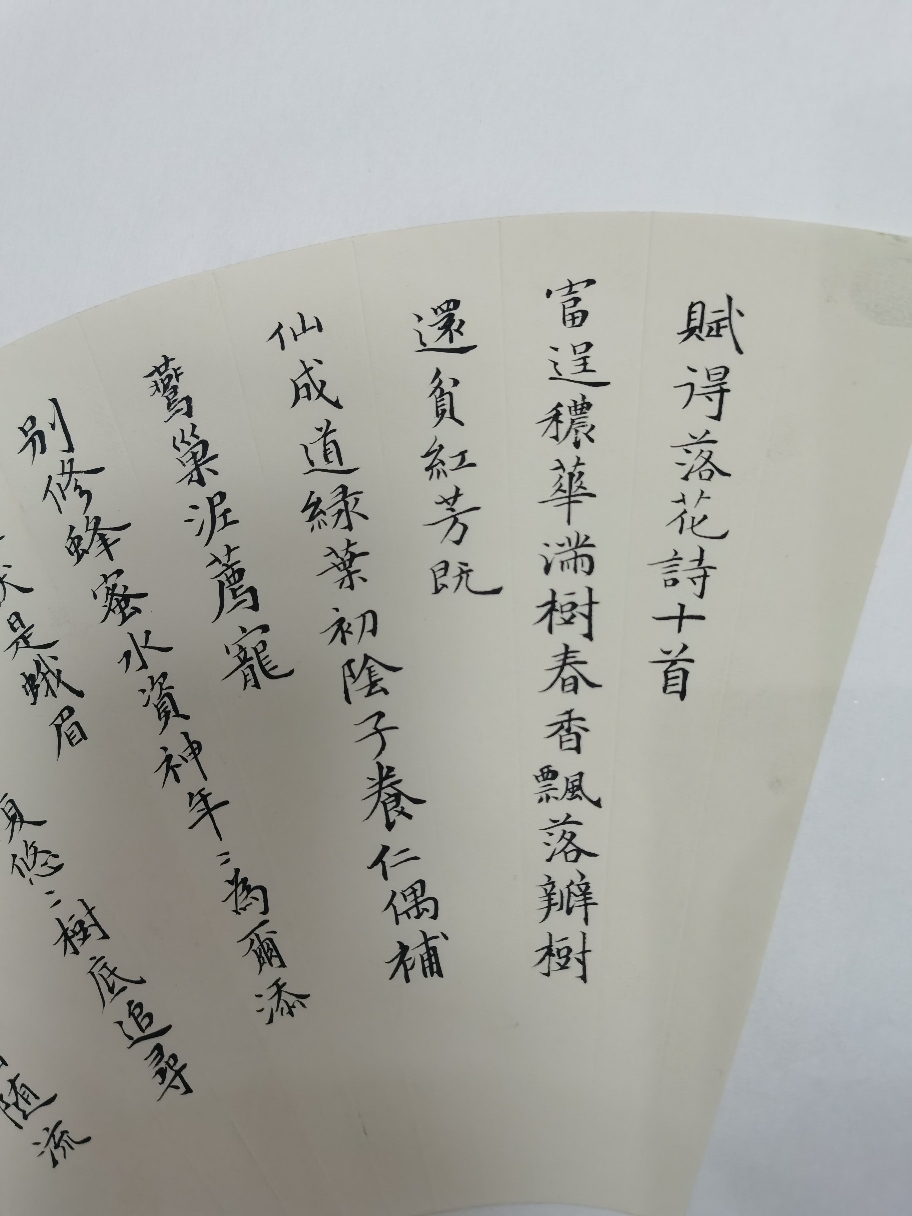 賦得落花詩十首
富逞穠華滿樹春香飄落瓣樹
還貧紅芳既
仙成道緑葉初陰子養仁偶補
鷰巢泥薦寵
別修蜂蜜水資神年〻為爾添
是蛾眉
悠〻樹底追尋
随流